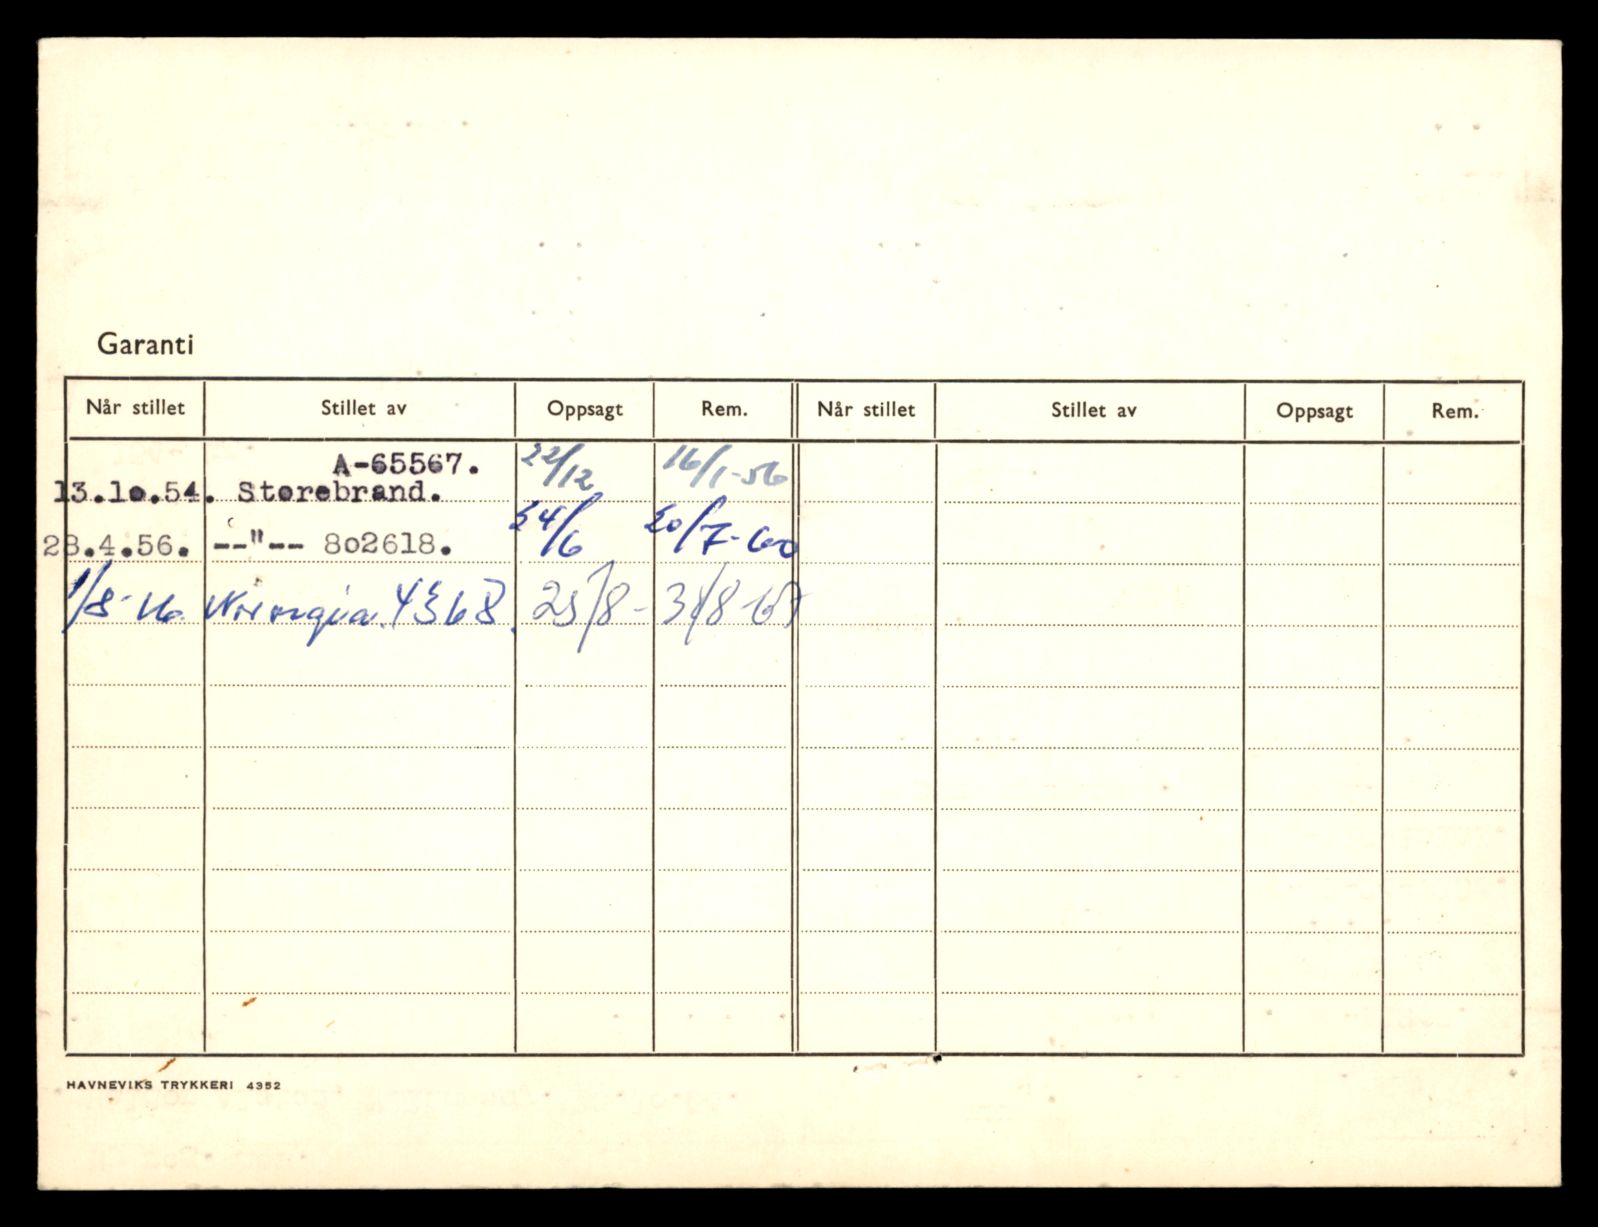 Garanti
Når stillet Stillet av Oppsagt Rem. Når stillet Stillet av Oppsagt Rem.
A-65567. 22/12 16/1-56
13.10.54. Storebrand.
28.4.56. --"-- 802618. 24/6 20/7-60
Norvegia. 25/8- 31/8
HAVNEVIKS TRYKKERI 4352